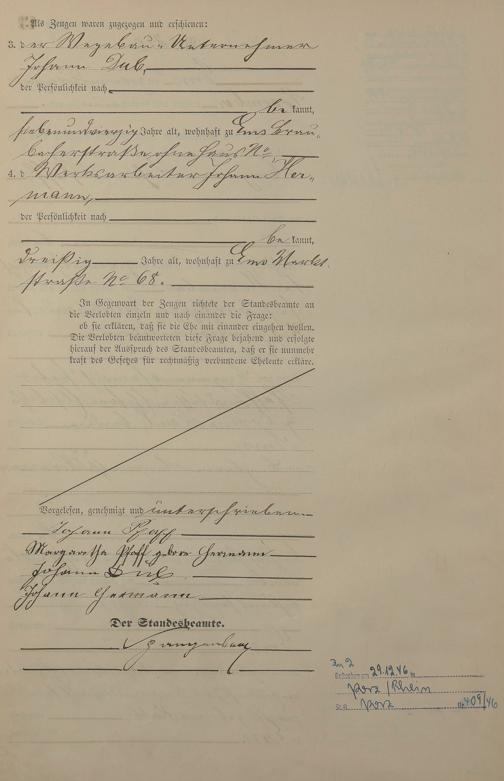 Als Zeugen waren zugezogen und erschienen:
3. der Wegebau-Unternehmer
Johann Dul,
der Persönlichkeit nach
be kannt,
siebenundvierzig Jahre alt, wohnhaft zu Ems Brau-
bacherstraße ohne Haus No
4. d Werksarbeiter Johann Her-
mann,
der Persönlichkeit nach
be kannt,
dreißig Jahre alt, wohnhaft zu Ems Markt
straße No 68.
In Gegenwart der Zeugen richtete der Standesbeamte an
die Verlobten einzeln und nach einander die Frage:
ob sie erklären, daß sie die Ehe mit einander eingehen wollen.
Die Verlobten beantworteten diese Frage bejahend und erfolgte
hierauf der Ausspruch des Standesbeamten, daß er sie nunmehr
kraft des Gesetzes für rechtmäßig verbundene Eheleute erkläre.
Vorgelesen, genehmigt und unterschrieben
Johann Pfaff
Margarethe Pfaff geborne Hermann
Johann Dul
Johann Hermann
Der Standesbeamte.
Spangenberg
Zu 2
Gestorben am 29.12.46
Porz/Rhein
St.A. Porz Nr. 409/46